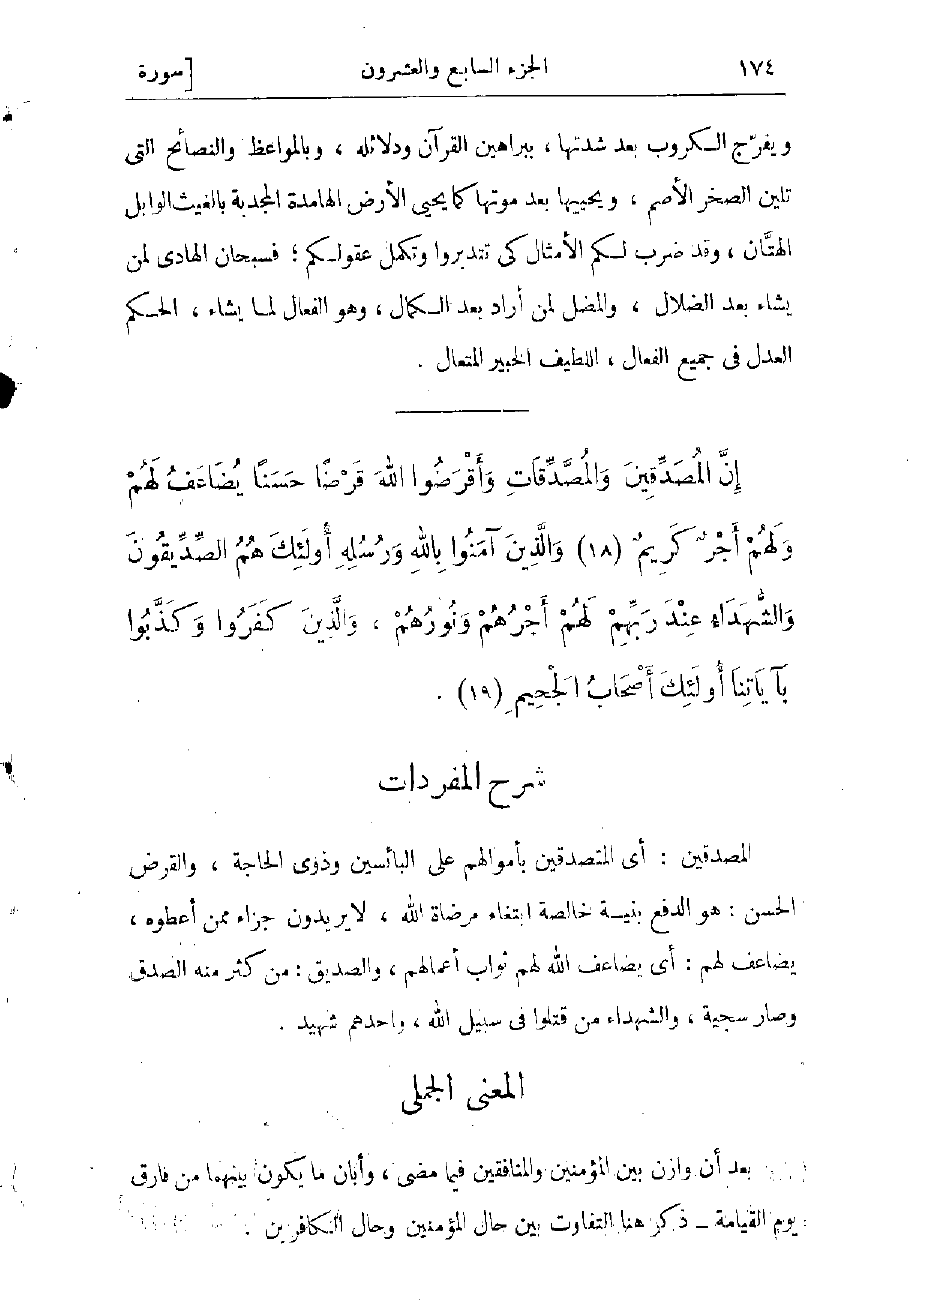 ١٧٤ الجزء السابع والعشرون [سورة
ويفرّج الكروب بعد شدتها، ببراهين القرآن ودلائله ، وبالمواعظ والنصائح التى
تلين الصخر الأصم ، ويحييها بعد موتها كما يحيى الأرض الهامدة المجدبة بالغيث الوابل
الهتَّان ، وقد ضرب لكم الأمثال كى تتدبروا وتكمل عقولكم ؛ فسبحان الهادى لمن
يشاء بعد الضلال ، والمضل لمن أراد بعد الكمال ، وهو الفعال لما يشاء ، الحكم
العدل فى جميع الفعال ، اللطيف الخبير المتعال .
إِنَّ الْمُصَدِّقِينَ وَالْمُصَّدِّقَاتِ وَأَقْرَضُوا اللهَ قَرْضًا حَسَنًا يُضَاعَفُ لَهُمْ
وَلَهُمْ أَجْرٌ كَرِيمٌ (١٨) وَالَّذِينَ آمَنُوا بِاللهِ وَرُسُلِهِ أُولَئِكَ هُمُ الصِّدِّيقُونَ
وَالشُّهَدَاءُ عِنْدَ رَبِّهِمْ لَهُمْ أَجْرُهُمْ وَنُورُهُمْ ، وَالَّذِينَ كَفَرُوا وَكَذَّبُوا
بِآيَاتِنَا أُولَئِكَ أَصْحَابُ الْجَحِيمِ (١٩) .
شرح المفردات
المصدقين : أى المتصدقين بأموالهم على البائسين وذوى الحاجة ، والقرض
الحسن : هو الدفع بنية خالصة ابتغاء مرضاة الله ، لا يريدون جزاء ممن أعطوه ،
يضاعف لهم : أى يضاعف الله لهم ثواب أعمالهم ، والصديق : من كثر منه الصدق
وصار سجية ، والشهداء من قتلوا فى سبيل الله ، واحدهم شهيد .
المعنى الجملى
بعد أن وازن بين المؤمنين والمنافقين فيما مضى ، وأبان ما يكون بينهما من فارق
يوم القيامة ــ ذكر هنا التفاوت بين حال المؤمنين وحال الكافرين .